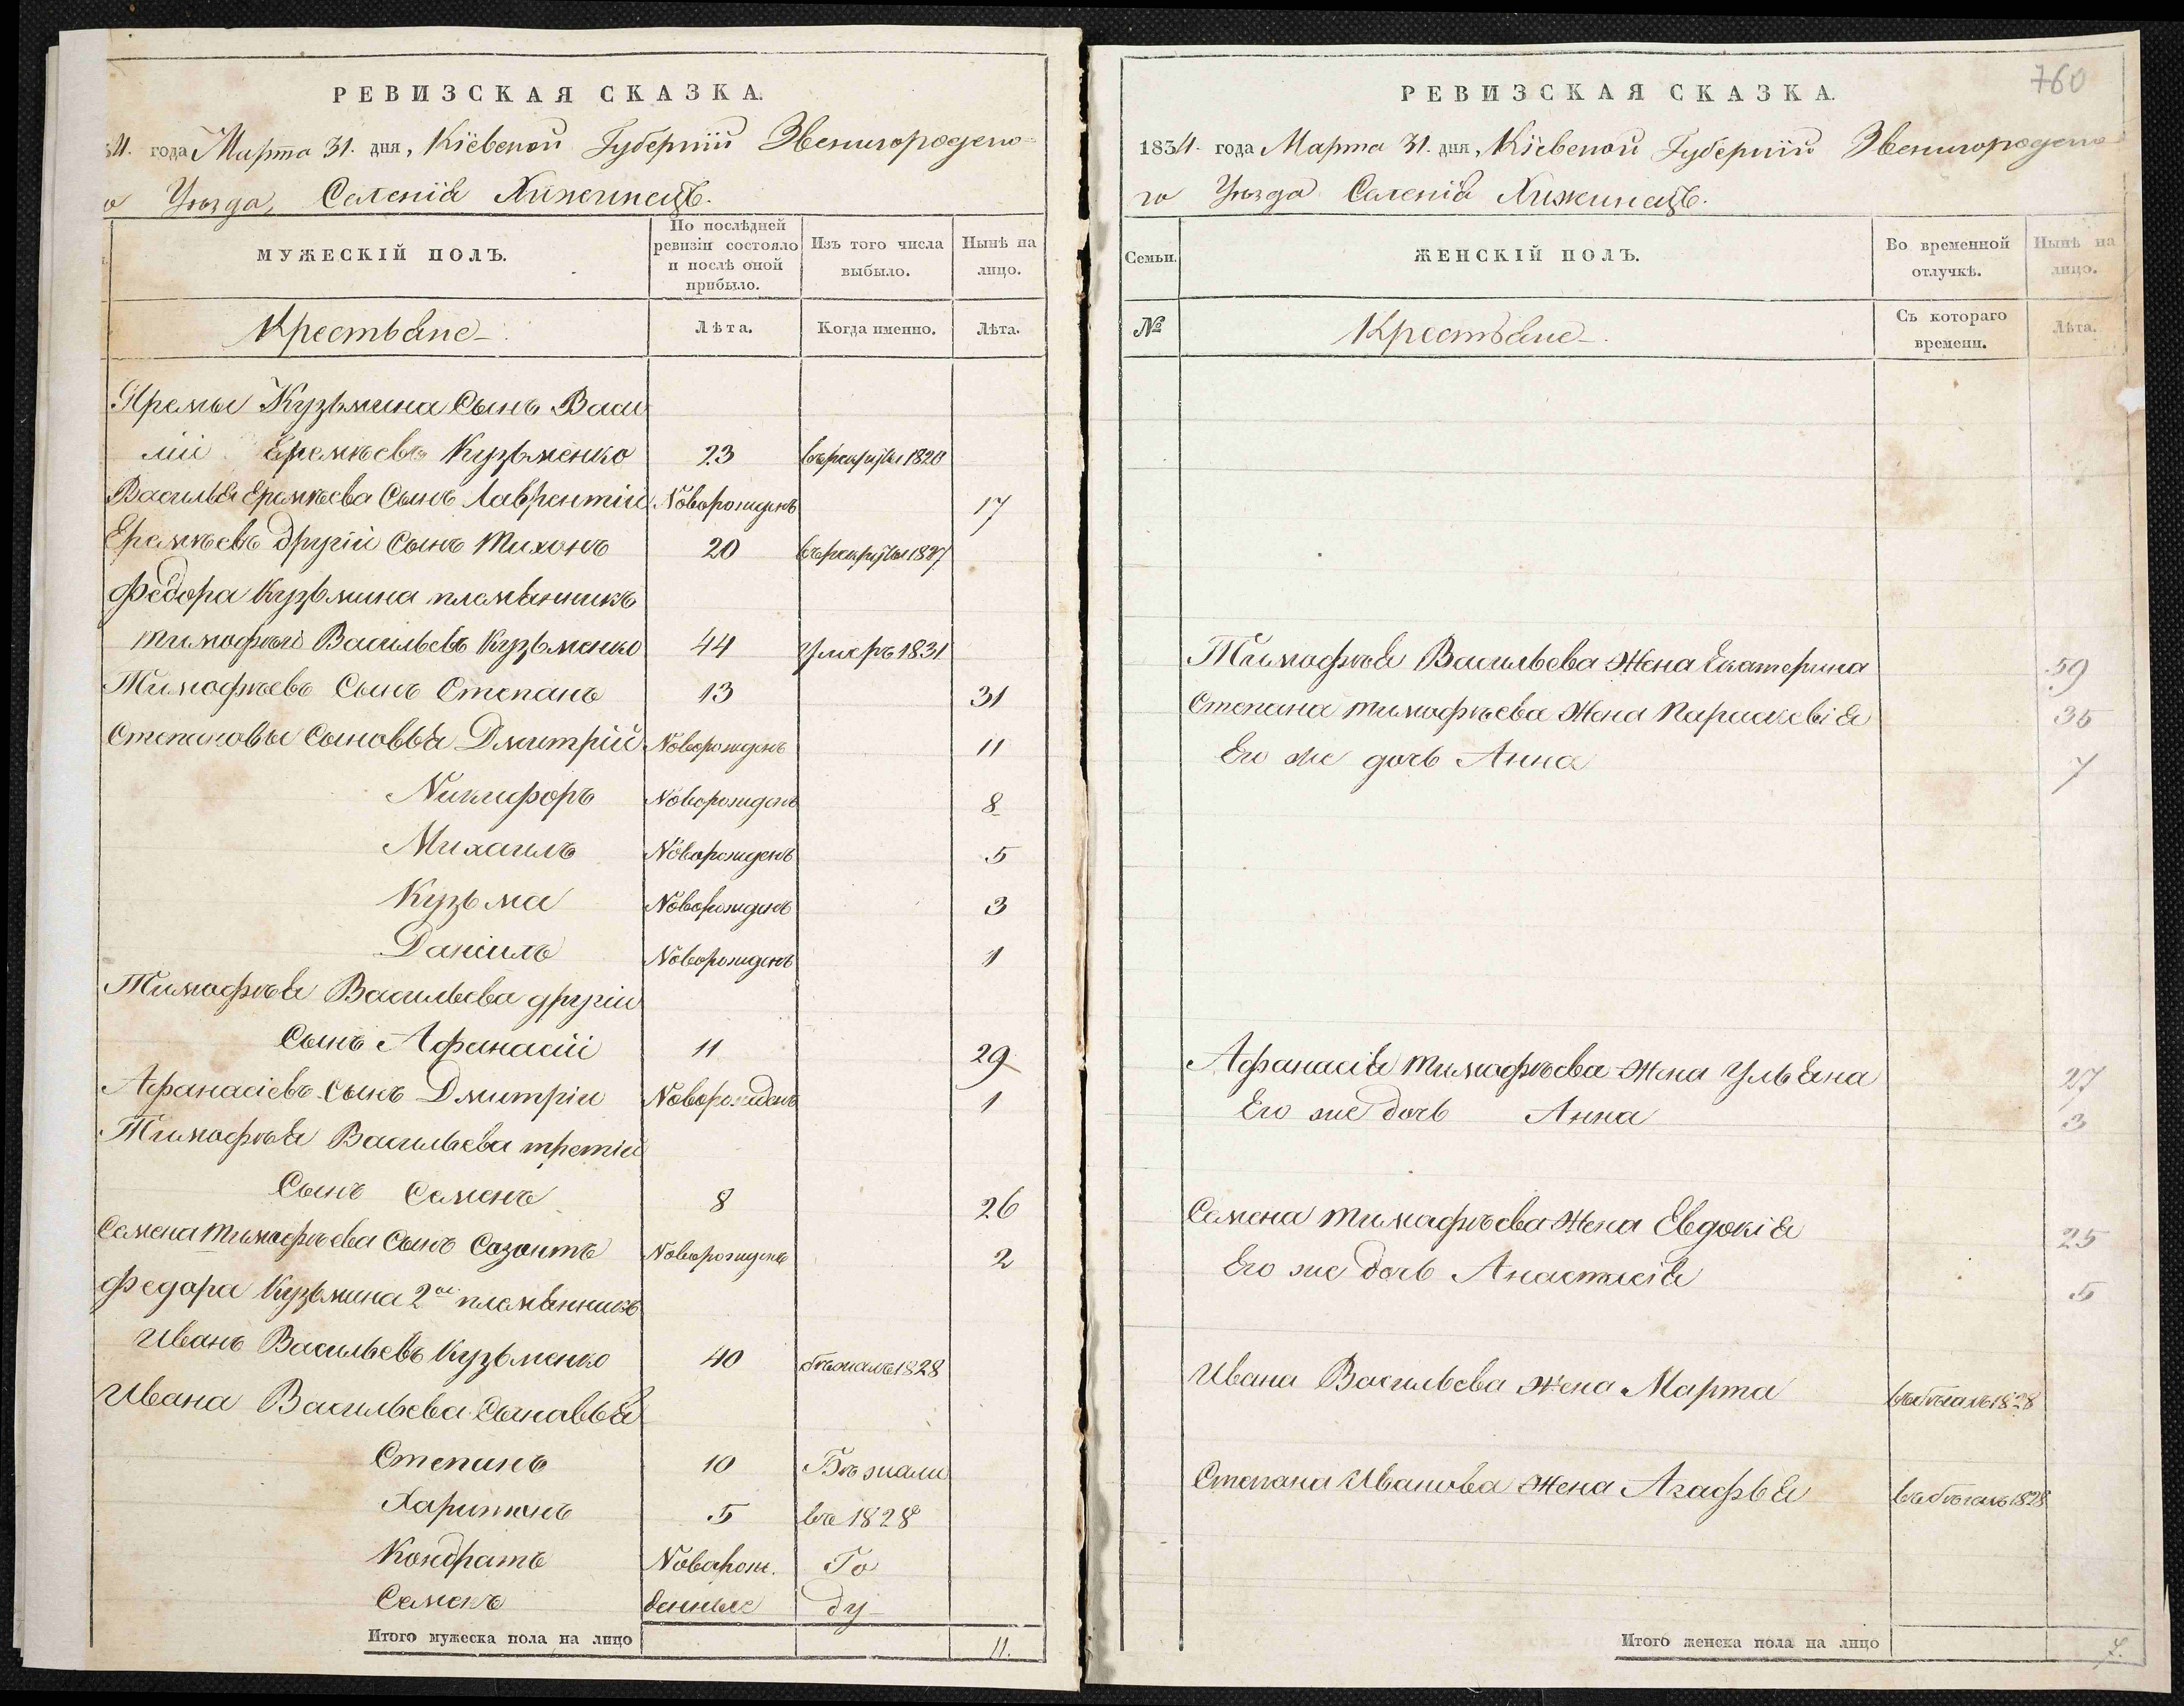 РЕВИЗСКАЯ СКАЗКА.
34. года Марта 31. дня, Кіевской Губерніи Звенигородско-
о Уѣзда, Селенія Хижинецъ.
МУЖЕСКІЙ ПОЛЪ.
По послѣдней ревизіи состояло и послѣ оной прибыло.
Изъ того числа выбыло.
Нынѣ на лицо.
Крестьяне
Лѣта.
Когда именно.
Лѣта.
Яремы Кузьмина Сынъ Васи
лій Еремѣевъ Кузьменко 23 въ рекруты 1820
Василья Еремѣева Сынъ Лаврентій Новорожденъ 17
Еремѣевъ другій Сынъ Тихонъ 20 въ рекруты 1827
Федора Кузьмина племянникъ
Тимофѣй Васильевъ Кузьменко 44 Умеръ 1831
Тимофѣевъ Сынъ Степанъ 13 31
Степановы Сыновья Дмитрій Новорожденъ 11
Никифоръ Новорожденъ 8
Михаилъ Новорожденъ 5
Кузьма Новорожденъ 3
Даніилъ Новорожденъ 1
Тимофѣя Васильева другій
Сынъ Афанасій 11 29
Афанасіевъ Сынъ Дмитрій Новорожденъ 1
Тимофѣя Васильева третій
Сынъ Семенъ 8 26
Семена Тимофѣева Сынъ Созонтъ Новорожденъ 2
Федора Кузьмина 2ой племянникъ
Иванъ Васильевъ Кузьменко 40 бѣжалъ 1828
Ивана Васильева Сыновья
Степанъ 10 Бѣжали
Харитонъ 5 въ 1828
Кондратъ Новорож. Го
Семенъ денные ду
Итого мужеска пола на лицо 11.
760
РЕВИЗСКАЯ СКАЗКА.
1834. года Марта 31. дня, Кіевской Губерніи Звенигородско
го Уѣзда Селенія Хижинецъ.
Семьи.
ЖЕНСКІЙ ПОЛЪ.
Во временной отлучкѣ.
Нынѣ на лицо.
№
Крестьяне
Съ котораго времени.
Лѣта.
Тимофѣя Васильева Жена Екатерина 59
Степана Тимофѣева Жена Параскевія 35
Его же дочь Анна 7
Афанасія Тимофѣева Жена Ульяна 27
Его же дочь Анна 3
Семена Тимофѣева Жена Евдокія 25
Его же дочь Анастасія 5
Ивана Васильева Жена Марта въ бѣгахъ 1828
Степана Иванова Жена Агафья въ бѣгахъ 1828
Итого женска пола на лицо 7.